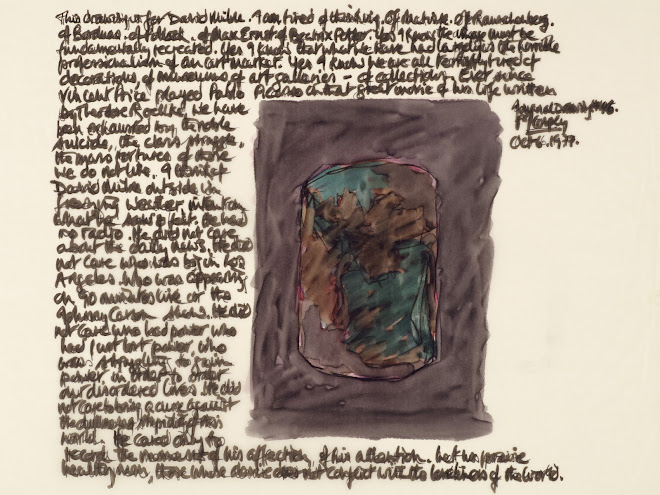 This drawing is for David Milne. I am tired of thinking. Of Matisse. Of Rauschenberg.
of Borduas. of Pollock. of Max Ernst of Beatrix Potter. Yes I know the image must be
fundamentally recreated. Yes I know that what we have had is the horrible
professionalism of an art market. Yes I know we are all tired of
decorations, of museums of art galleries - of collections. Ever since
Vincent Price played Pablo Picasso in that great movie of his life written
by Theodore Roethke we have
been exhausted by the noble
suicide, the class struggle,
the mass tortures of those
we do not like. I think of
David Milne outside in
freezing weather
what he saw & felt. He had
no radio. He did not care
about the daily news. He did
not care who was big in Los
Angeles. who was appearing
on 90 minutes live or the
Johnny Carson show. He did
not care who had power who
had just lost power, who
was struggling to gain
power in order to
our disordered lives. He did
not care to bring a cure against
the dullness & stupidity of this
world. He cared only to
record the moments of his affection of his attention. Let us praise
healthy men, those whose desire does not conflict with the loveliness of the World.
Journal Drawing #
Oct 6. 1977.